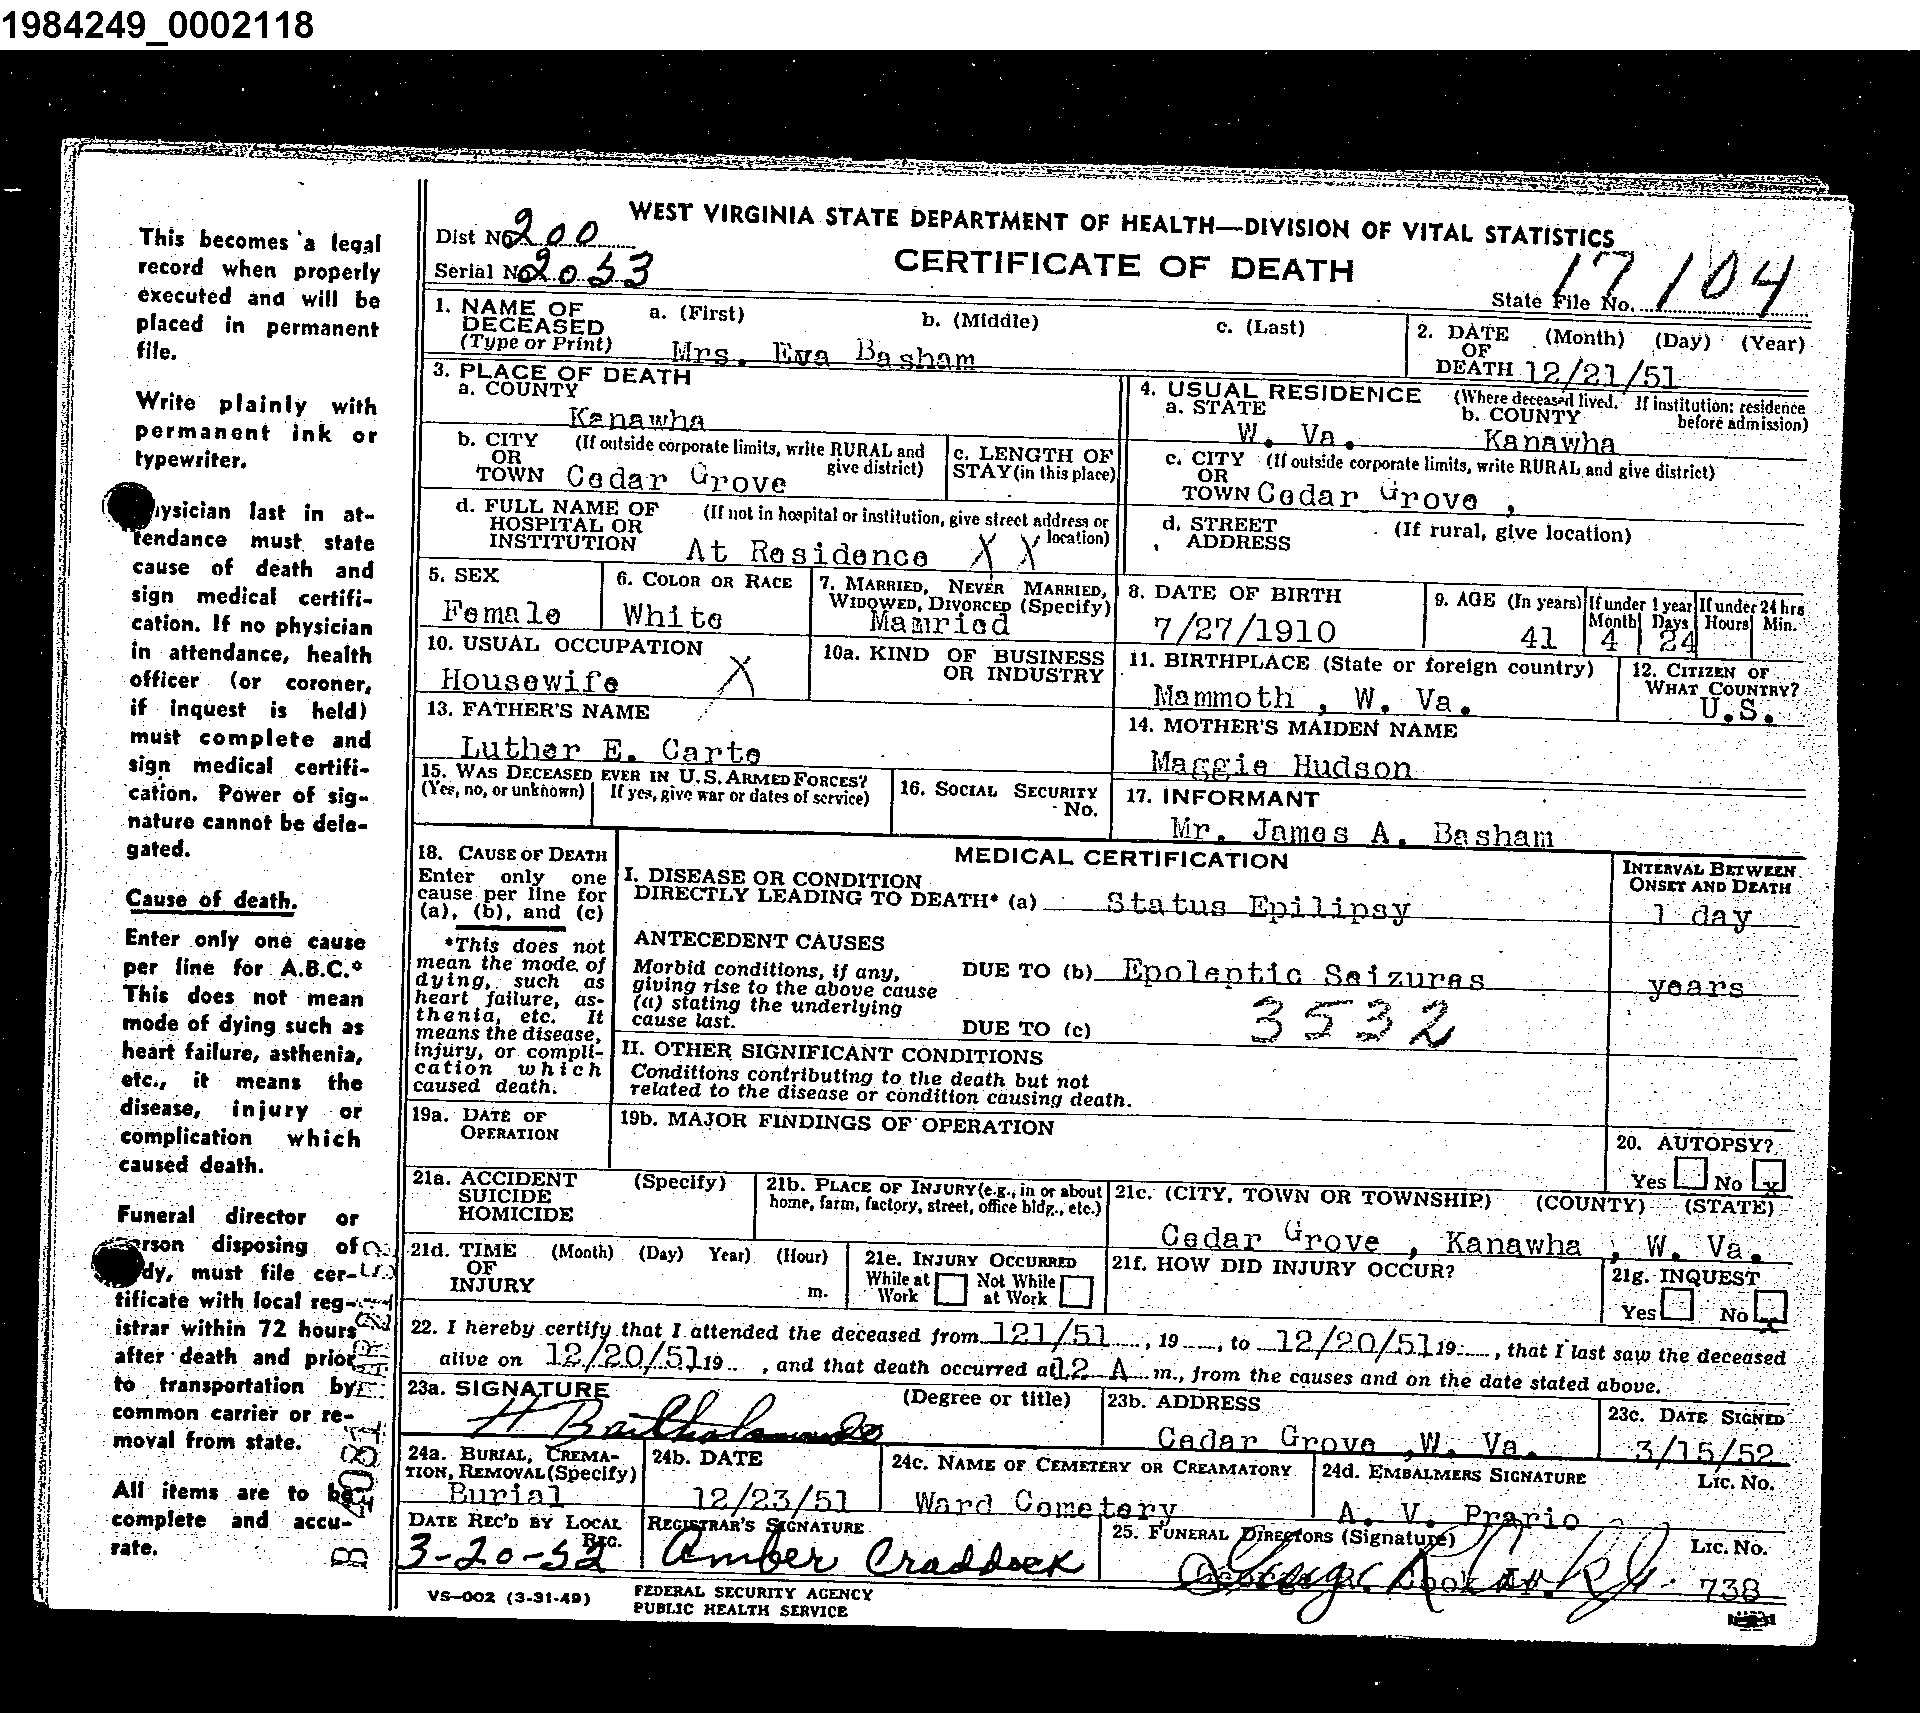 1984249_0002118
This becomes a legal
record when properly
executed and will be
placed in permanent
file.
Write plainly with
permanent ink or
typewriter.
hysician last in at-
tendance must state
cause of death and
sign medical certifi-
cation. If no physician
in attendance, health
officer (or coroner,
if inquest is held)
must complete and
sign medical certifi-
cation. Power of sig-
nature cannot be dele-
gated.
Cause of death.
Enter only one cause
per line for A.B.C.*
This does not mean
mode of dying such as
heart failure, asthenia,
etc., it means the
disease, injury or
complication which
caused death.
Funeral director or
erson disposing of
dy, must file cer-
tificate with local reg-
istrar within 72 hours
after death and prior
to transportation by
common carrier or re-
moval from state.
All items are to be
complete and accu-
rate.
WEST VIRGINIA STATE DEPARTMENT OF HEALTH—DIVISION OF VITAL STATISTICS
CERTIFICATE OF DEATH
Dist No. 200
Serial No. 2053
State File No. 17104
1. NAME OF DECEASED (Type or Print) a. (First) b. (Middle) c. (Last)
Mrs. Eva Basham
2. DATE OF DEATH (Month) (Day) (Year)
12/21/51
3. PLACE OF DEATH
a. COUNTY
Kanawha
b. CITY OR TOWN (If outside corporate limits, write RURAL and give district)
Cedar Grove
c. LENGTH OF STAY (in this place)
d. FULL NAME OF HOSPITAL OR INSTITUTION (If not in hospital or institution, give street address or location)
At Residence X X
4. USUAL RESIDENCE (Where deceased lived. If institution: residence before admission)
a. STATE b. COUNTY
W. Va. Kanawha
c. CITY OR TOWN (If outside corporate limits, write RURAL and give district)
Cedar Grove ,
d. STREET ADDRESS (If rural, give location)
5. SEX
Female
6. COLOR OR RACE
White
7. MARRIED, NEVER MARRIED, WIDOWED, DIVORCED (Specify)
Mamried
8. DATE OF BIRTH
7/27/1910
9. AGE (In years) If under 1 year If under 24 hrs
Month Days Hours Min.
41 4 24
10. USUAL OCCUPATION
Housewife X
10a. KIND OF BUSINESS OR INDUSTRY
11. BIRTHPLACE (State or foreign country)
Mammoth , W. Va.
12. CITIZEN OF WHAT COUNTRY?
U.S.
13. FATHER'S NAME
Luther E. Carte
14. MOTHER'S MAIDEN NAME
Maggie Hudson
15. WAS DECEASED EVER IN U.S. ARMED FORCES?
(Yes, no, or unknown) If yes, give war or dates of service)
16. SOCIAL SECURITY No.
17. INFORMANT
Mr. James A. Basham
18. CAUSE OF DEATH
Enter only one
cause per line for
(a), (b), and (c)
*This does not
mean the mode of
dying, such as
heart failure, as-
thenia, etc. It
means the disease,
injury, or compli-
cation which
caused death.
MEDICAL CERTIFICATION
INTERVAL BETWEEN ONSET AND DEATH
I. DISEASE OR CONDITION
DIRECTLY LEADING TO DEATH* (a) Status Epilipsy 1 day
ANTECEDENT CAUSES
Morbid conditions, if any,
giving rise to the above cause
(a) stating the underlying
cause last.
DUE TO (b) Epoleptic Seizures years
3532
DUE TO (c)
II. OTHER SIGNIFICANT CONDITIONS
Conditions contributing to the death but not
related to the disease or condition causing death.
19a. DATE OF OPERATION
19b. MAJOR FINDINGS OF OPERATION
20. AUTOPSY?
Yes No x
21a. ACCIDENT SUICIDE HOMICIDE (Specify)
21b. PLACE OF INJURY (e.g., in or about
home, farm, factory, street, office bldg., etc.)
21c. (CITY, TOWN OR TOWNSHIP) (COUNTY) (STATE)
Cedar Grove , Kanawha , W. Va.
21d. TIME OF INJURY (Month) (Day) Year) (Hour)
m.
21e. INJURY OCCURRED
While at Work Not While at Work
21f. HOW DID INJURY OCCUR?
21g. INQUEST
Yes No x
22. I hereby certify that I attended the deceased from 121/51, 19, to 12/20/51 19, that I last saw the deceased
alive on 12/20/51 19, and that death occurred at 12 A m., from the causes and on the date stated above.
23a. SIGNATURE (Degree or title)
23b. ADDRESS
Cedar Grove ,W. Va.
23c. DATE SIGNED
3/15/52
24a. BURIAL, CREMA-
TION, REMOVAL (Specify)
Burial
24b. DATE
12/23/51
24c. NAME OF CEMETERY OR CREAMATORY
Ward Cemetery
24d. EMBALMERS SIGNATURE Lic. No.
A. V. Prario
DATE REC'D BY LOCAL REG.
3-20-52
REGISTRAR'S SIGNATURE
Amber Craddock
25. FUNERAL DIRECTORS (Signature) Lic. No.
738
VS—002 (3-31-49)
FEDERAL SECURITY AGENCY
PUBLIC HEALTH SERVICE